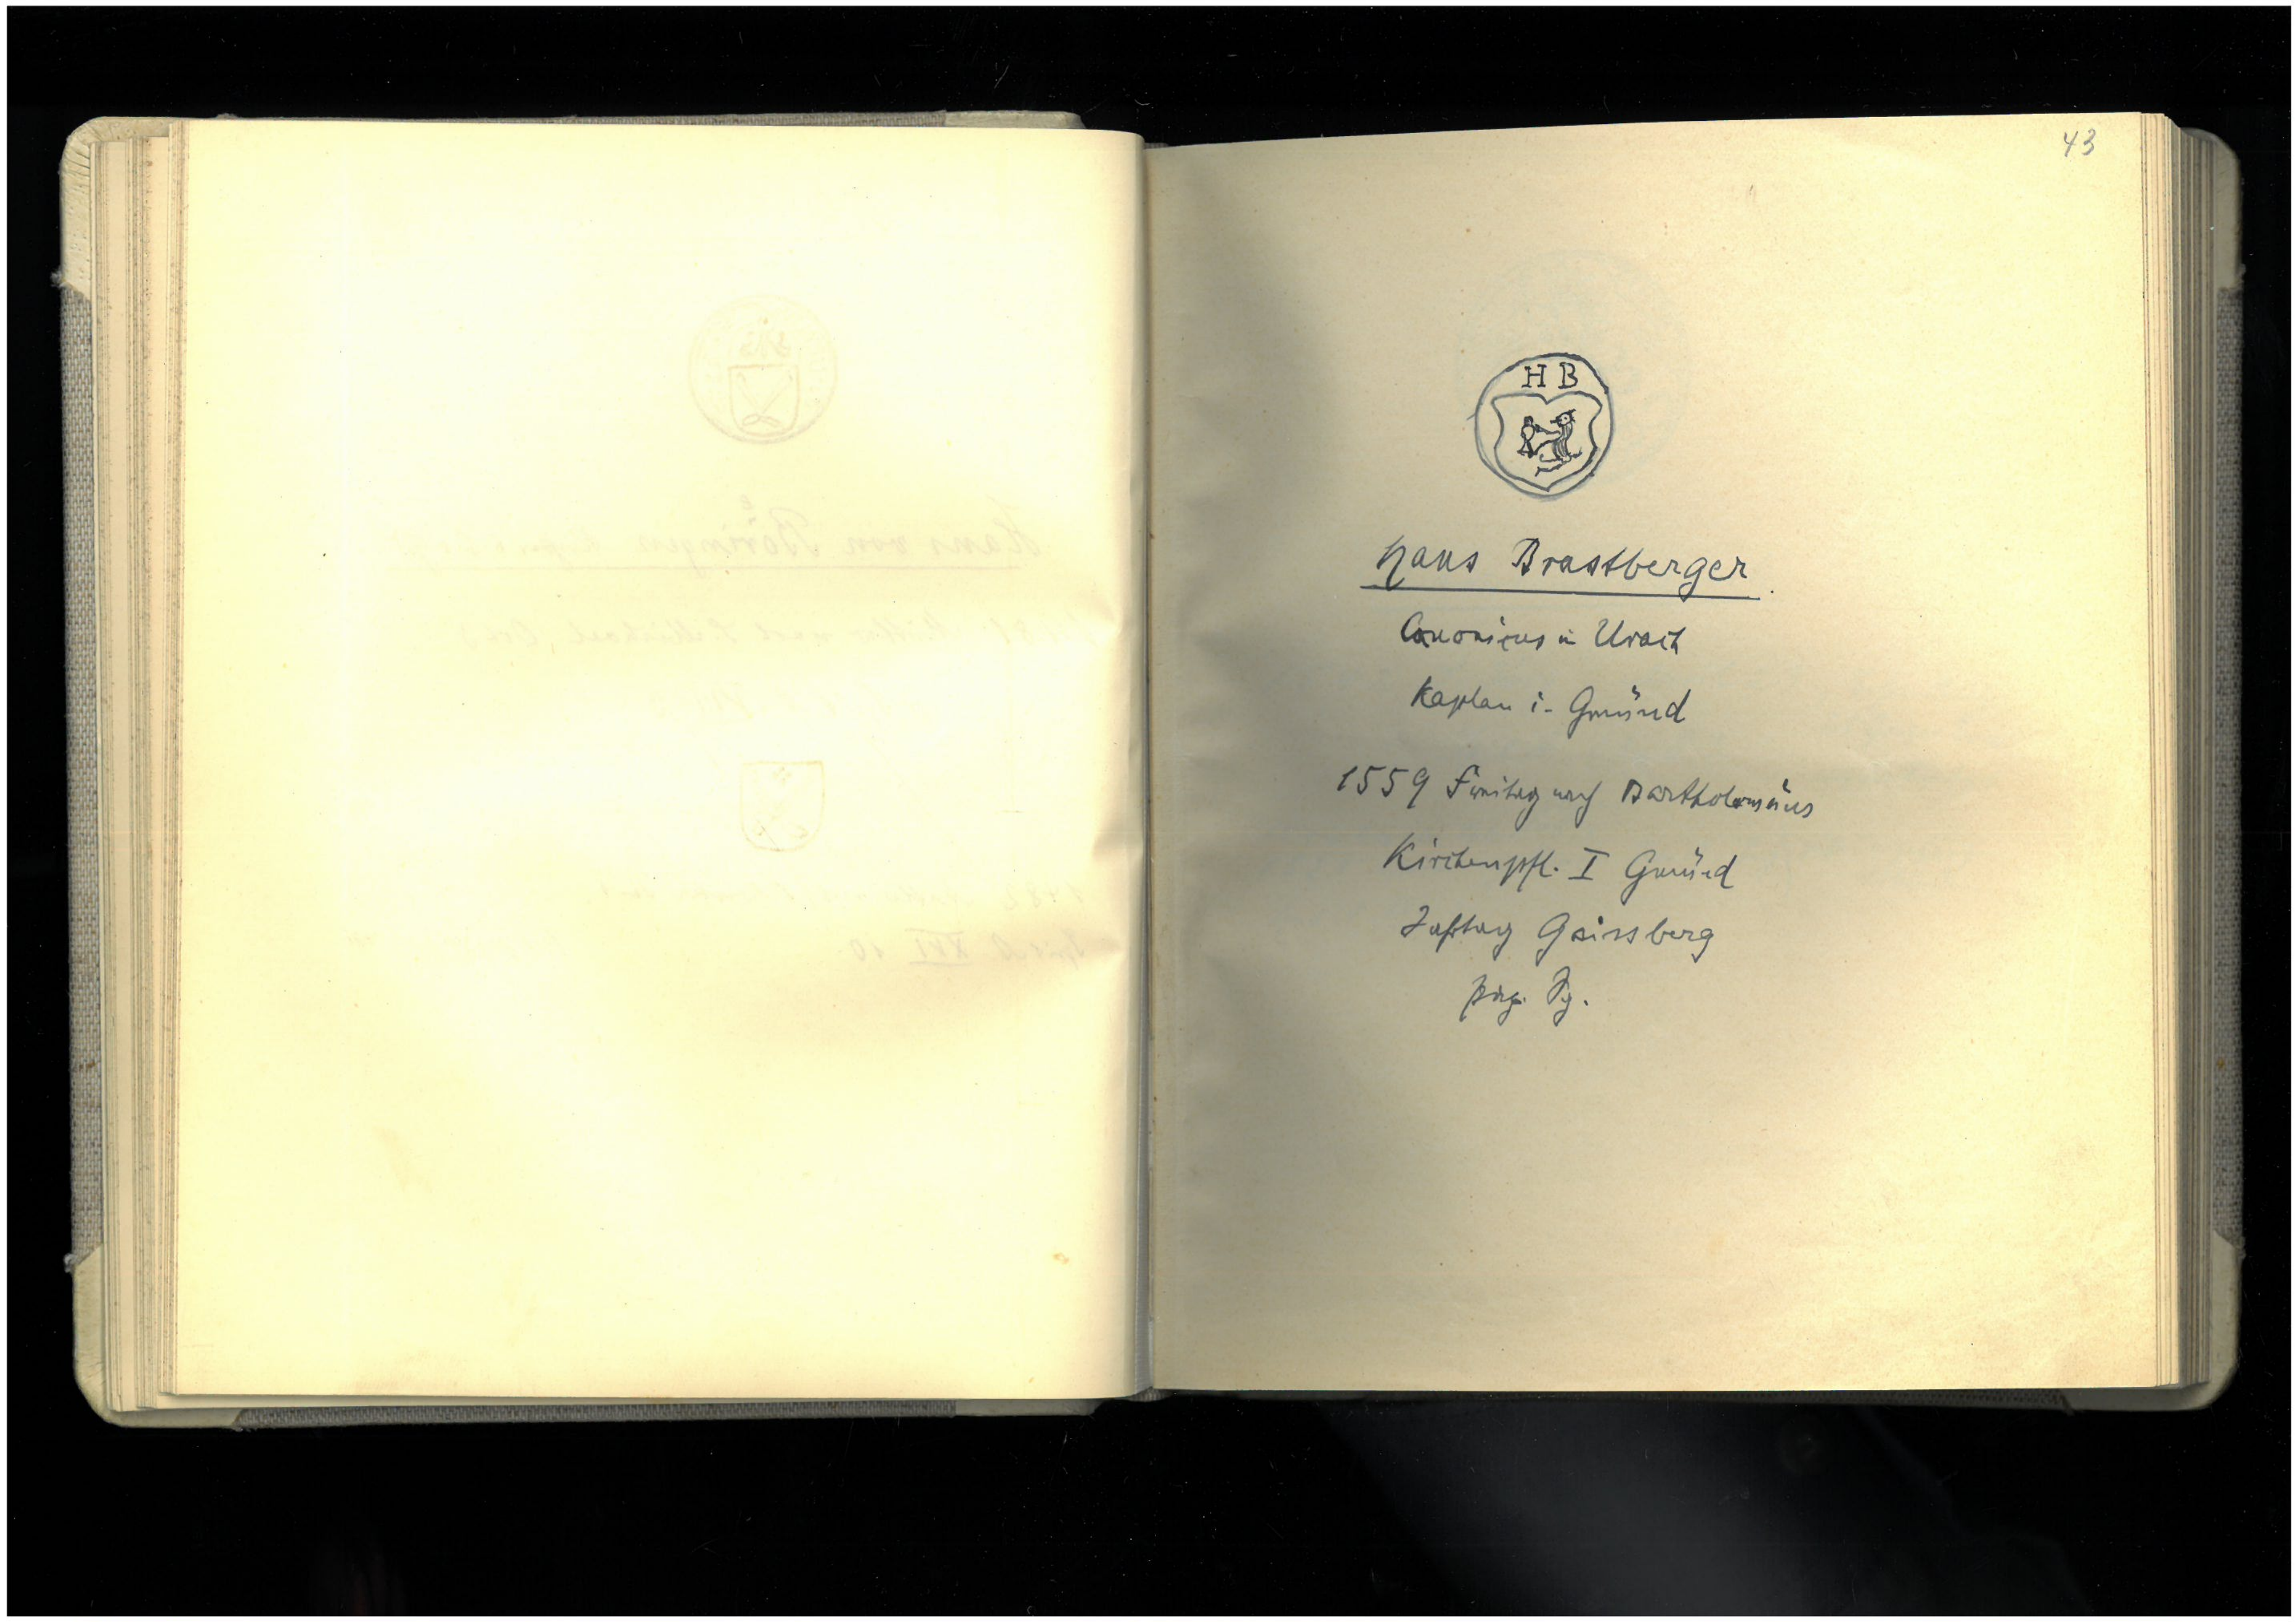 43
H B
Hans Brastberger
Canonicus in Urach
Kaplan i. Gmünd
1559 Freitag nach Bartholomäus
Kirchenpfl. I Gmünd
Jahrtag Geissberg
Sg.